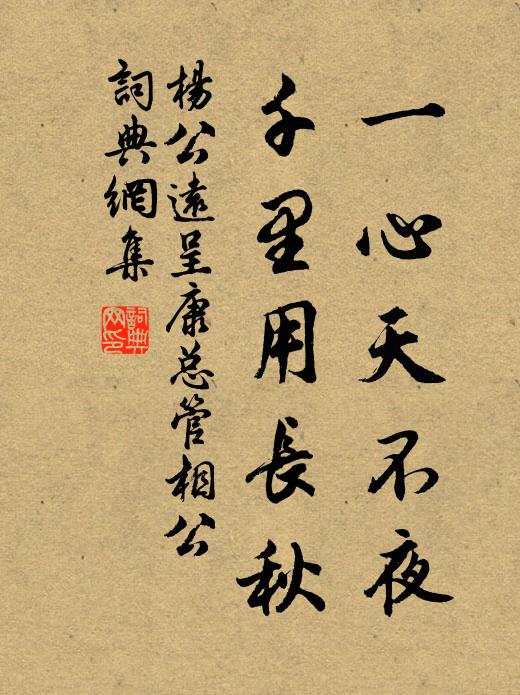 一心天不夜
千里用長秋
楊公遠呈康总管相公
詞典網集
詞典网印